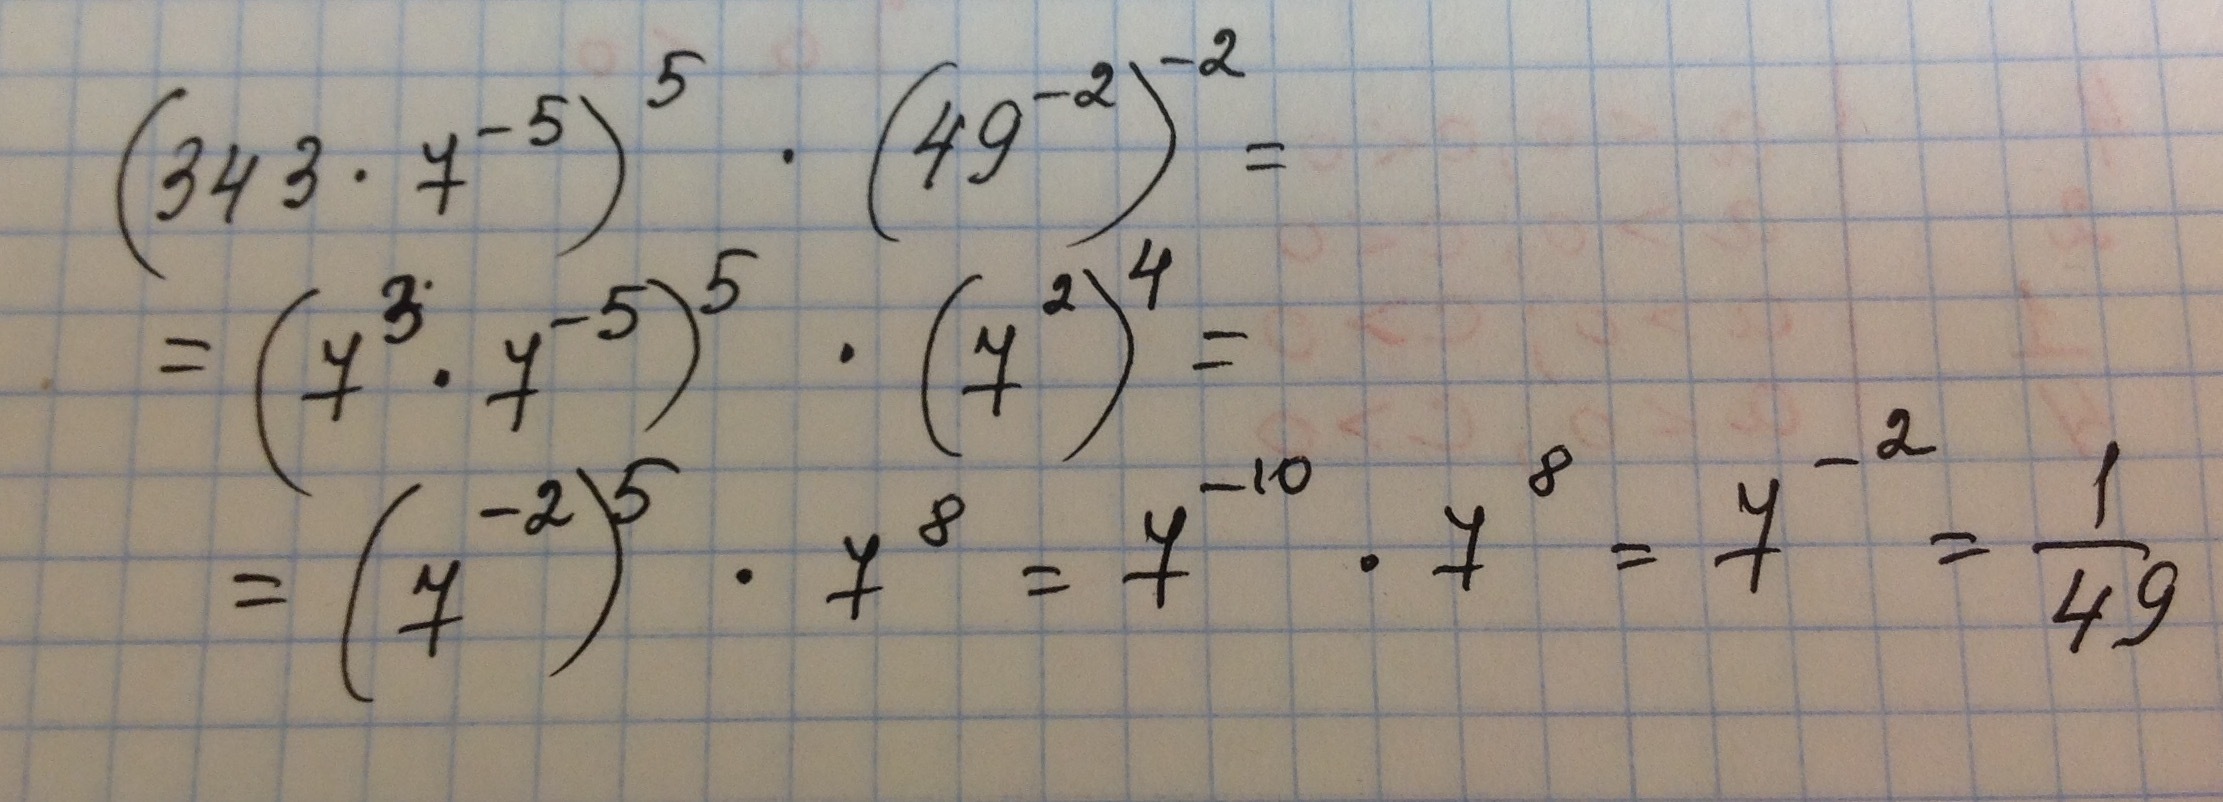 (343 · 7⁻⁵)⁵ · (49⁻²)⁻² =
= (7³ · 7⁻⁵)⁵ · (7²)⁴ =
= (7⁻²)⁵ · 7⁸ = 7⁻¹⁰ · 7⁸ = 7⁻² = 1/49